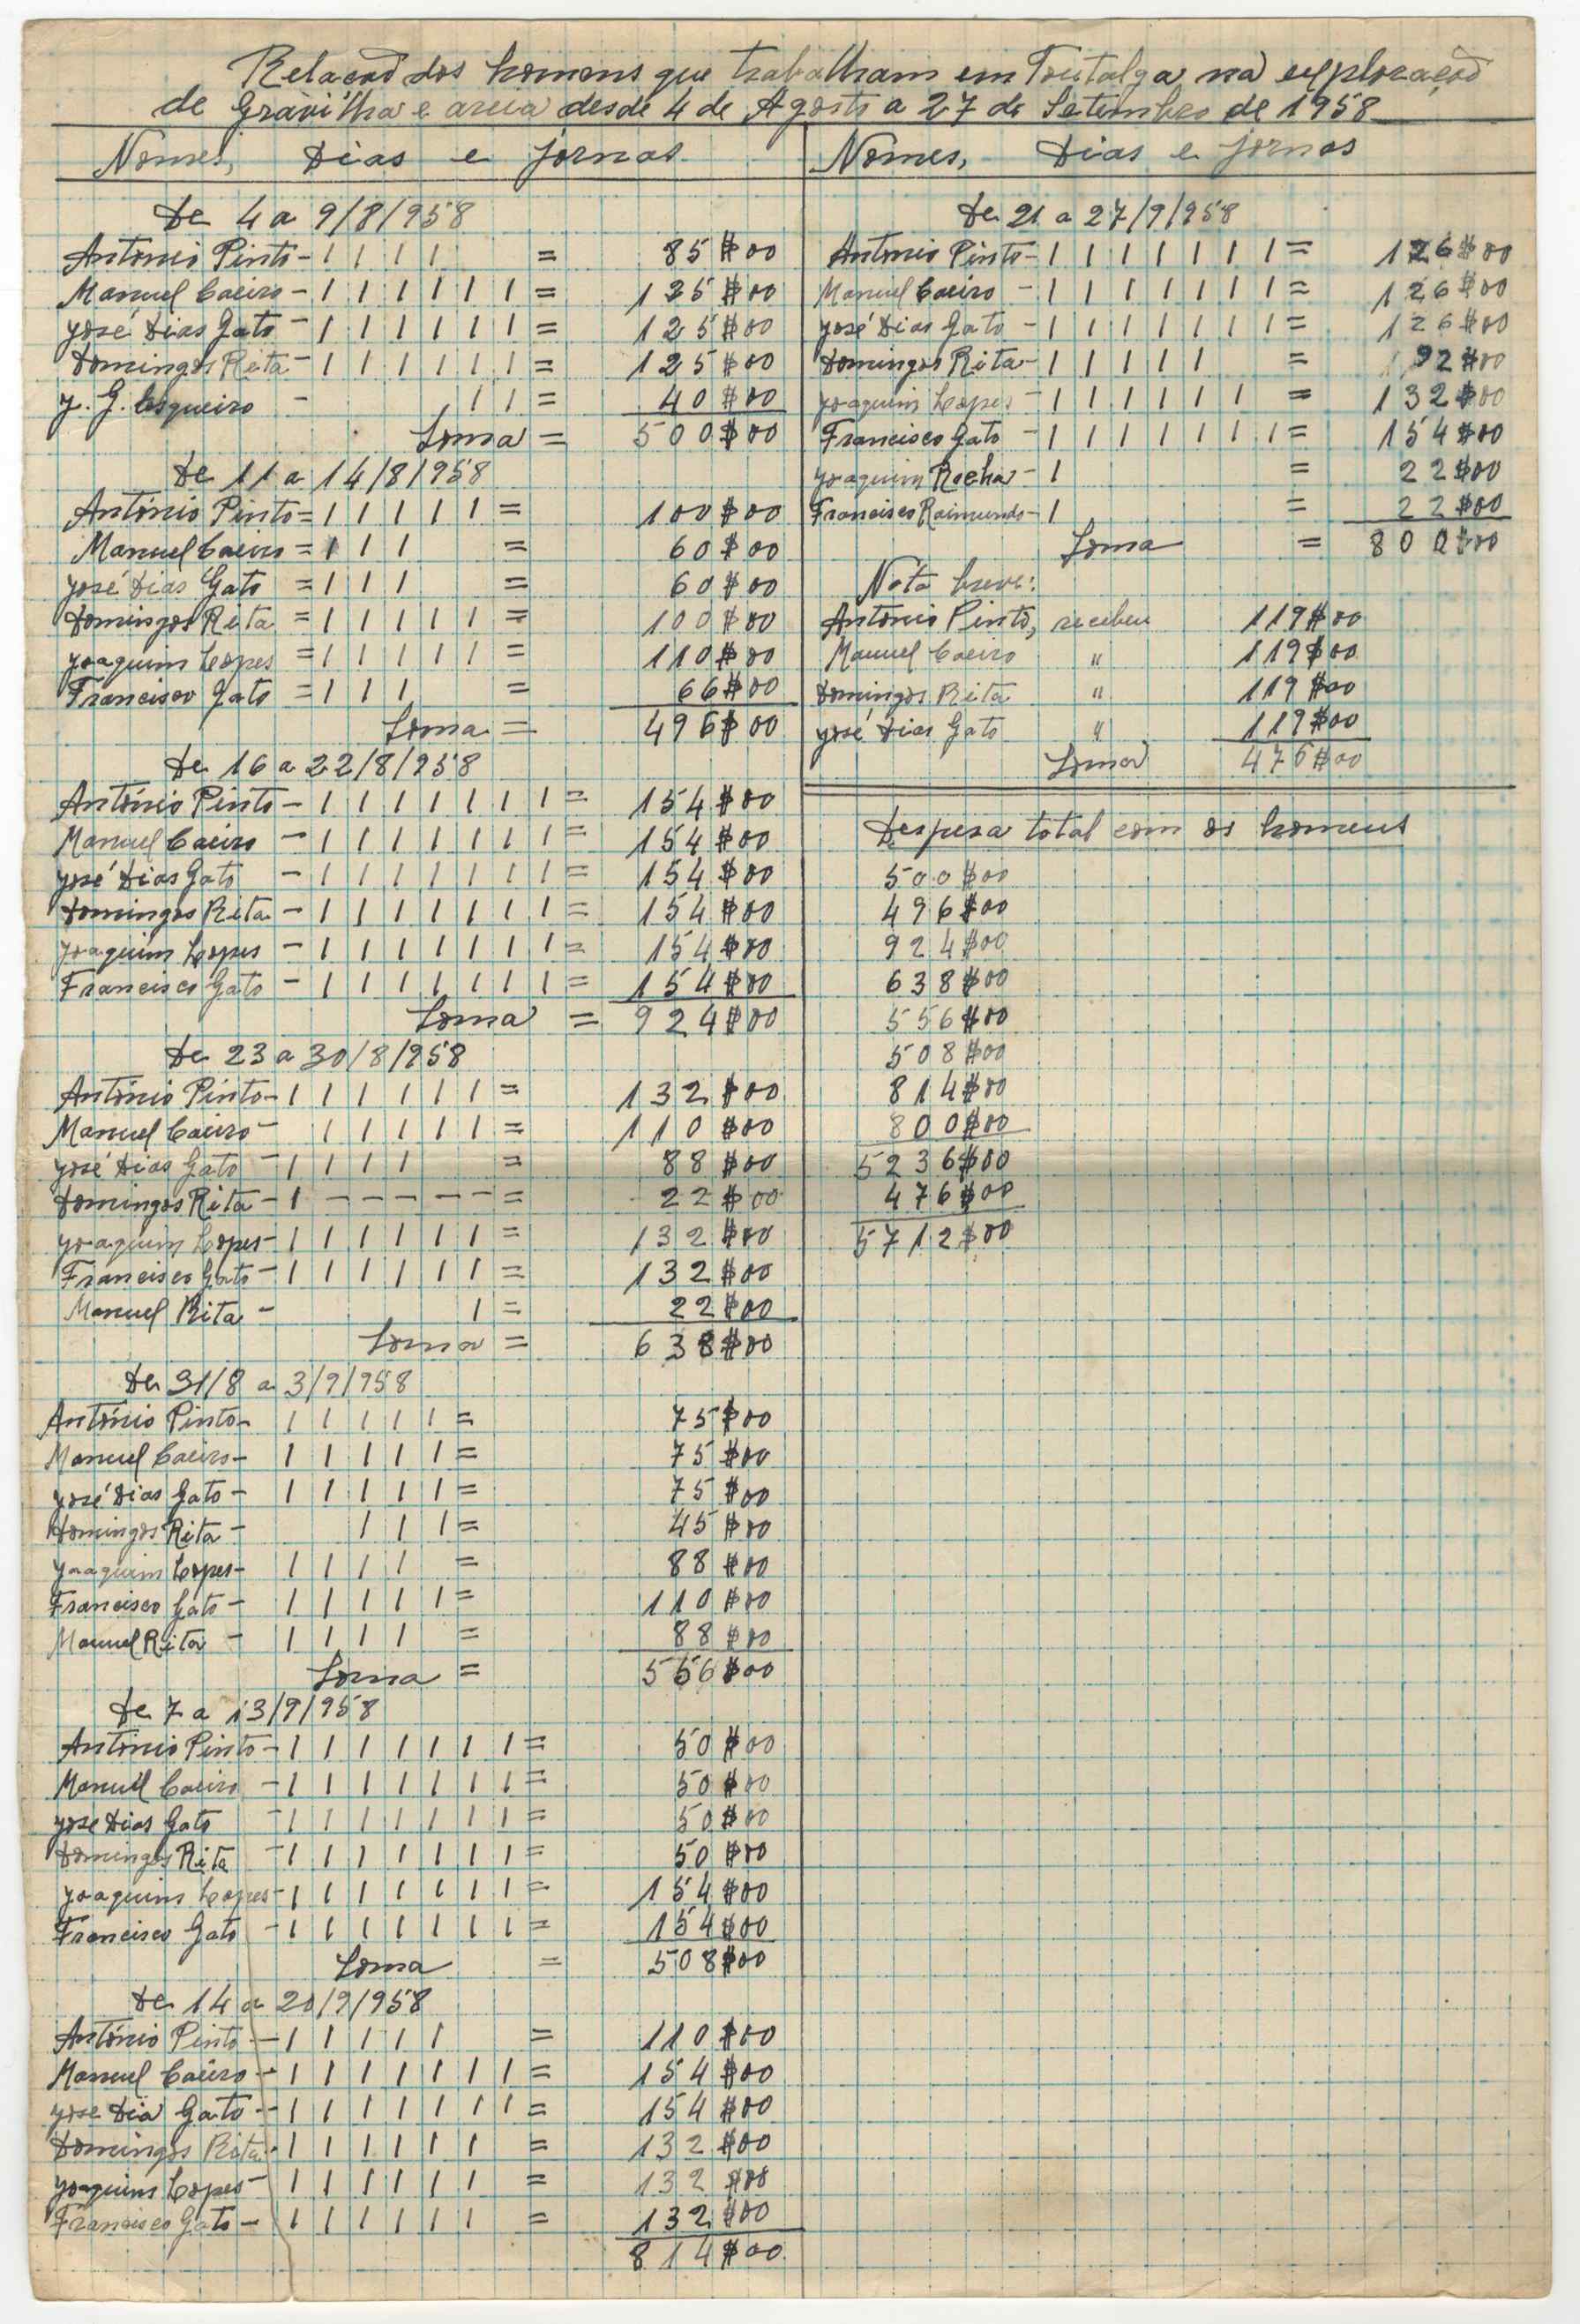 Relação dos homens que trabalham em Toutalga na exploração
de Gravilha e areia desde 4 de Agosto a 27 de Setembro de 1958
Nomes, Dias e jornas
De 4 a 9/8/958
António Pinto - 1 1 1 1 = 85$00
Manuel Caeiro - 1 1 1 1 1 1 = 125$00
José Dias Gato - 1 1 1 1 1 1 = 125$00
Domingos Rita - 1 1 1 1 1 1 = 125$00
J. G. - 1 1 = 40$00
Soma = 500$00
De 11 a 14/8/958
António Pinto = 1 1 1 1 1 = 100$00
Manuel Caeiro = 1 1 1 = 60$00
José Dias Gato = 1 1 1 = 60$00
Domingos Rita = 1 1 1 1 1 = 100$00
Joaquim Lopes = 1 1 1 1 1 = 110$00
Francisco Gato = 1 1 1 = 66$00
Soma = 496$00
De 16 a 22/8/958
António Pinto - 1 1 1 1 1 1 1 = 154$00
Manuel Caeiro - 1 1 1 1 1 1 1 = 154$00
José Dias Gato - 1 1 1 1 1 1 1 = 154$00
Domingos Rita - 1 1 1 1 1 1 1 = 154$00
Joaquim Lopes - 1 1 1 1 1 1 1 = 154$00
Francisco Gato - 1 1 1 1 1 1 1 = 154$00
Soma = 924$00
De 23 a 30/8/958
António Pinto - 1 1 1 1 1 1 = 132$00
Manuel Caeiro - 1 1 1 1 1 = 110$00
José Dias Gato - 1 1 1 1 = 88$00
Domingos Rita - 1 - - - - - = 22$00
Joaquim Lopes - 1 1 1 1 1 1 = 132$00
Francisco Gato - 1 1 1 1 1 1 = 132$00
Manuel Rita - 1 = 22$00
Soma = 638$00
De 31/8 a 3/9/958
António Pinto - 1 1 1 1 1 = 75$00
Manuel Caeiro - 1 1 1 1 1 = 75$00
José Dias Gato - 1 1 1 1 1 = 75$00
Domingos Rita - 1 1 1 = 45$00
Joaquim Lopes - 1 1 1 1 = 88$00
Francisco Gato - 1 1 1 1 1 = 110$00
Manuel Rita - 1 1 1 1 = 88$00
Soma = 556$00
De 7 a 13/9/958
António Pinto - 1 1 1 1 1 1 1 = 50$00
Manuel Caeiro - 1 1 1 1 1 1 1 = 50$00
José Dias Gato - 1 1 1 1 1 1 1 = 50$00
Domingos Rita - 1 1 1 1 1 1 1 = 50$00
Joaquim Lopes - 1 1 1 1 1 1 1 = 154$00
Francisco Gato - 1 1 1 1 1 1 1 = 154$00
Soma = 508$00
De 14 a 20/9/958
António Pinto - 1 1 1 1 1 = 110$00
Manuel Caeiro - 1 1 1 1 1 1 1 = 154$00
José Dia Gato - 1 1 1 1 1 1 1 = 154$00
Domingos Rita - 1 1 1 1 1 1 = 132$00
Joaquim Lopes - 1 1 1 1 1 1 = 132$00
Francisco Gato - 1 1 1 1 1 1 = 132$00
814$00
Nomes, Dias e jornas
De 21 a 27/9/958
António Pinto - 1 1 1 1 1 1 1 = 126$00
Manuel Caeiro - 1 1 1 1 1 1 1 = 126$00
José Dias Gato - 1 1 1 1 1 1 1 = 126$00
Domingos Rita - 1 1 1 1 1 = 92$00
Joaquim Lopes - 1 1 1 1 1 1 = 132$00
Francisco Gato - 1 1 1 1 1 1 1 = 154$00
Joaquim Rocha - 1 = 22$00
Francisco Raimundo - 1 = 22$00
Soma = 800$00
Nota breve:
António Pinto, recebeu 119$00
Manuel Caeiro " 119$00
Domingos Rita " 119$00
José Dias Gato " 119$00
Soma 476$00
Despesa total com os homens
500$00
496$00
924$00
638$00
556$00
508$00
814$00
800$00
5236$00
476$00
5712$00